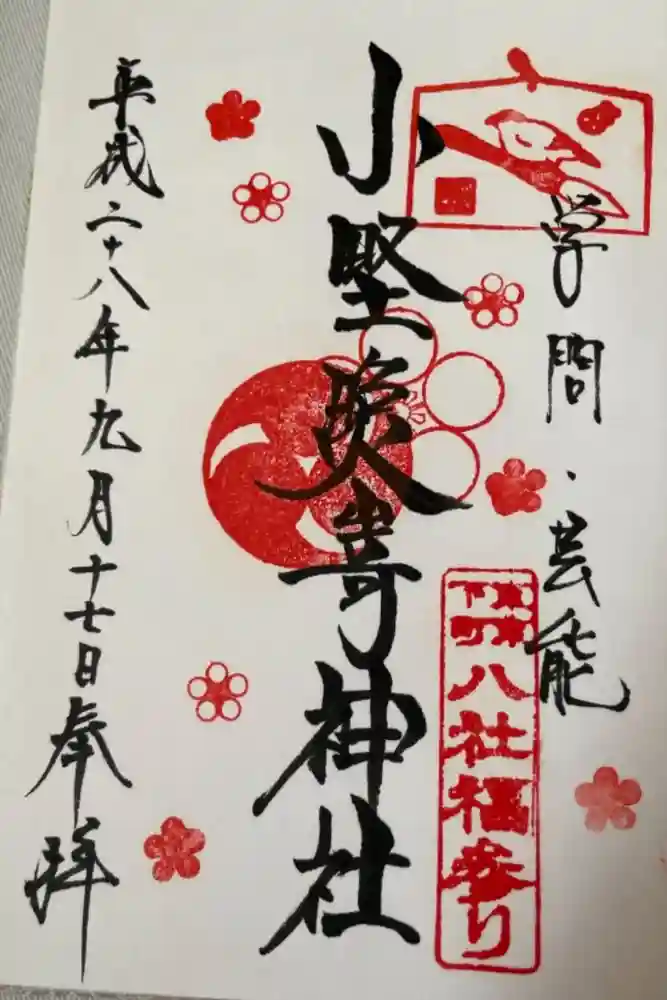 学問・芸能
小嵜神社
八社福参り
平成二十八年九月十七日奉拝